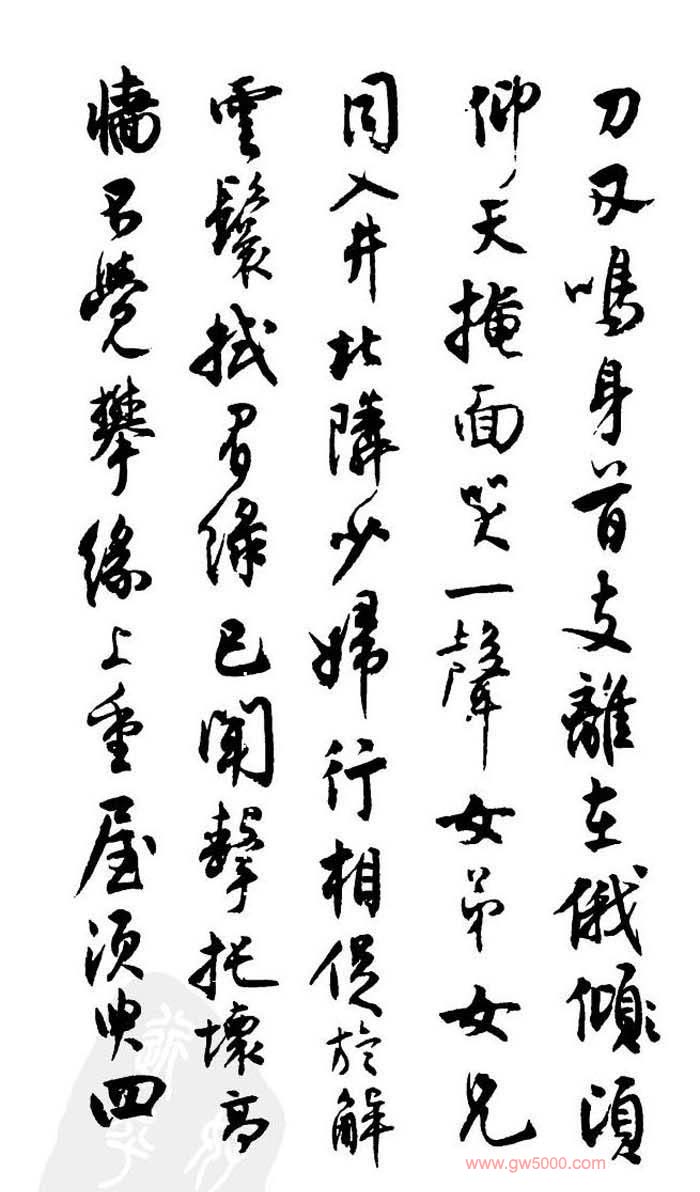 刀刃鳴身首支離在俄傾須
仰天掩面哭一聲女弟女兄
同入井北隣少婦行相促旋解
雲鬟拭眉綠已聞擊托壞高
墻不覺攀緣上重屋須臾四
www.gw5000.com